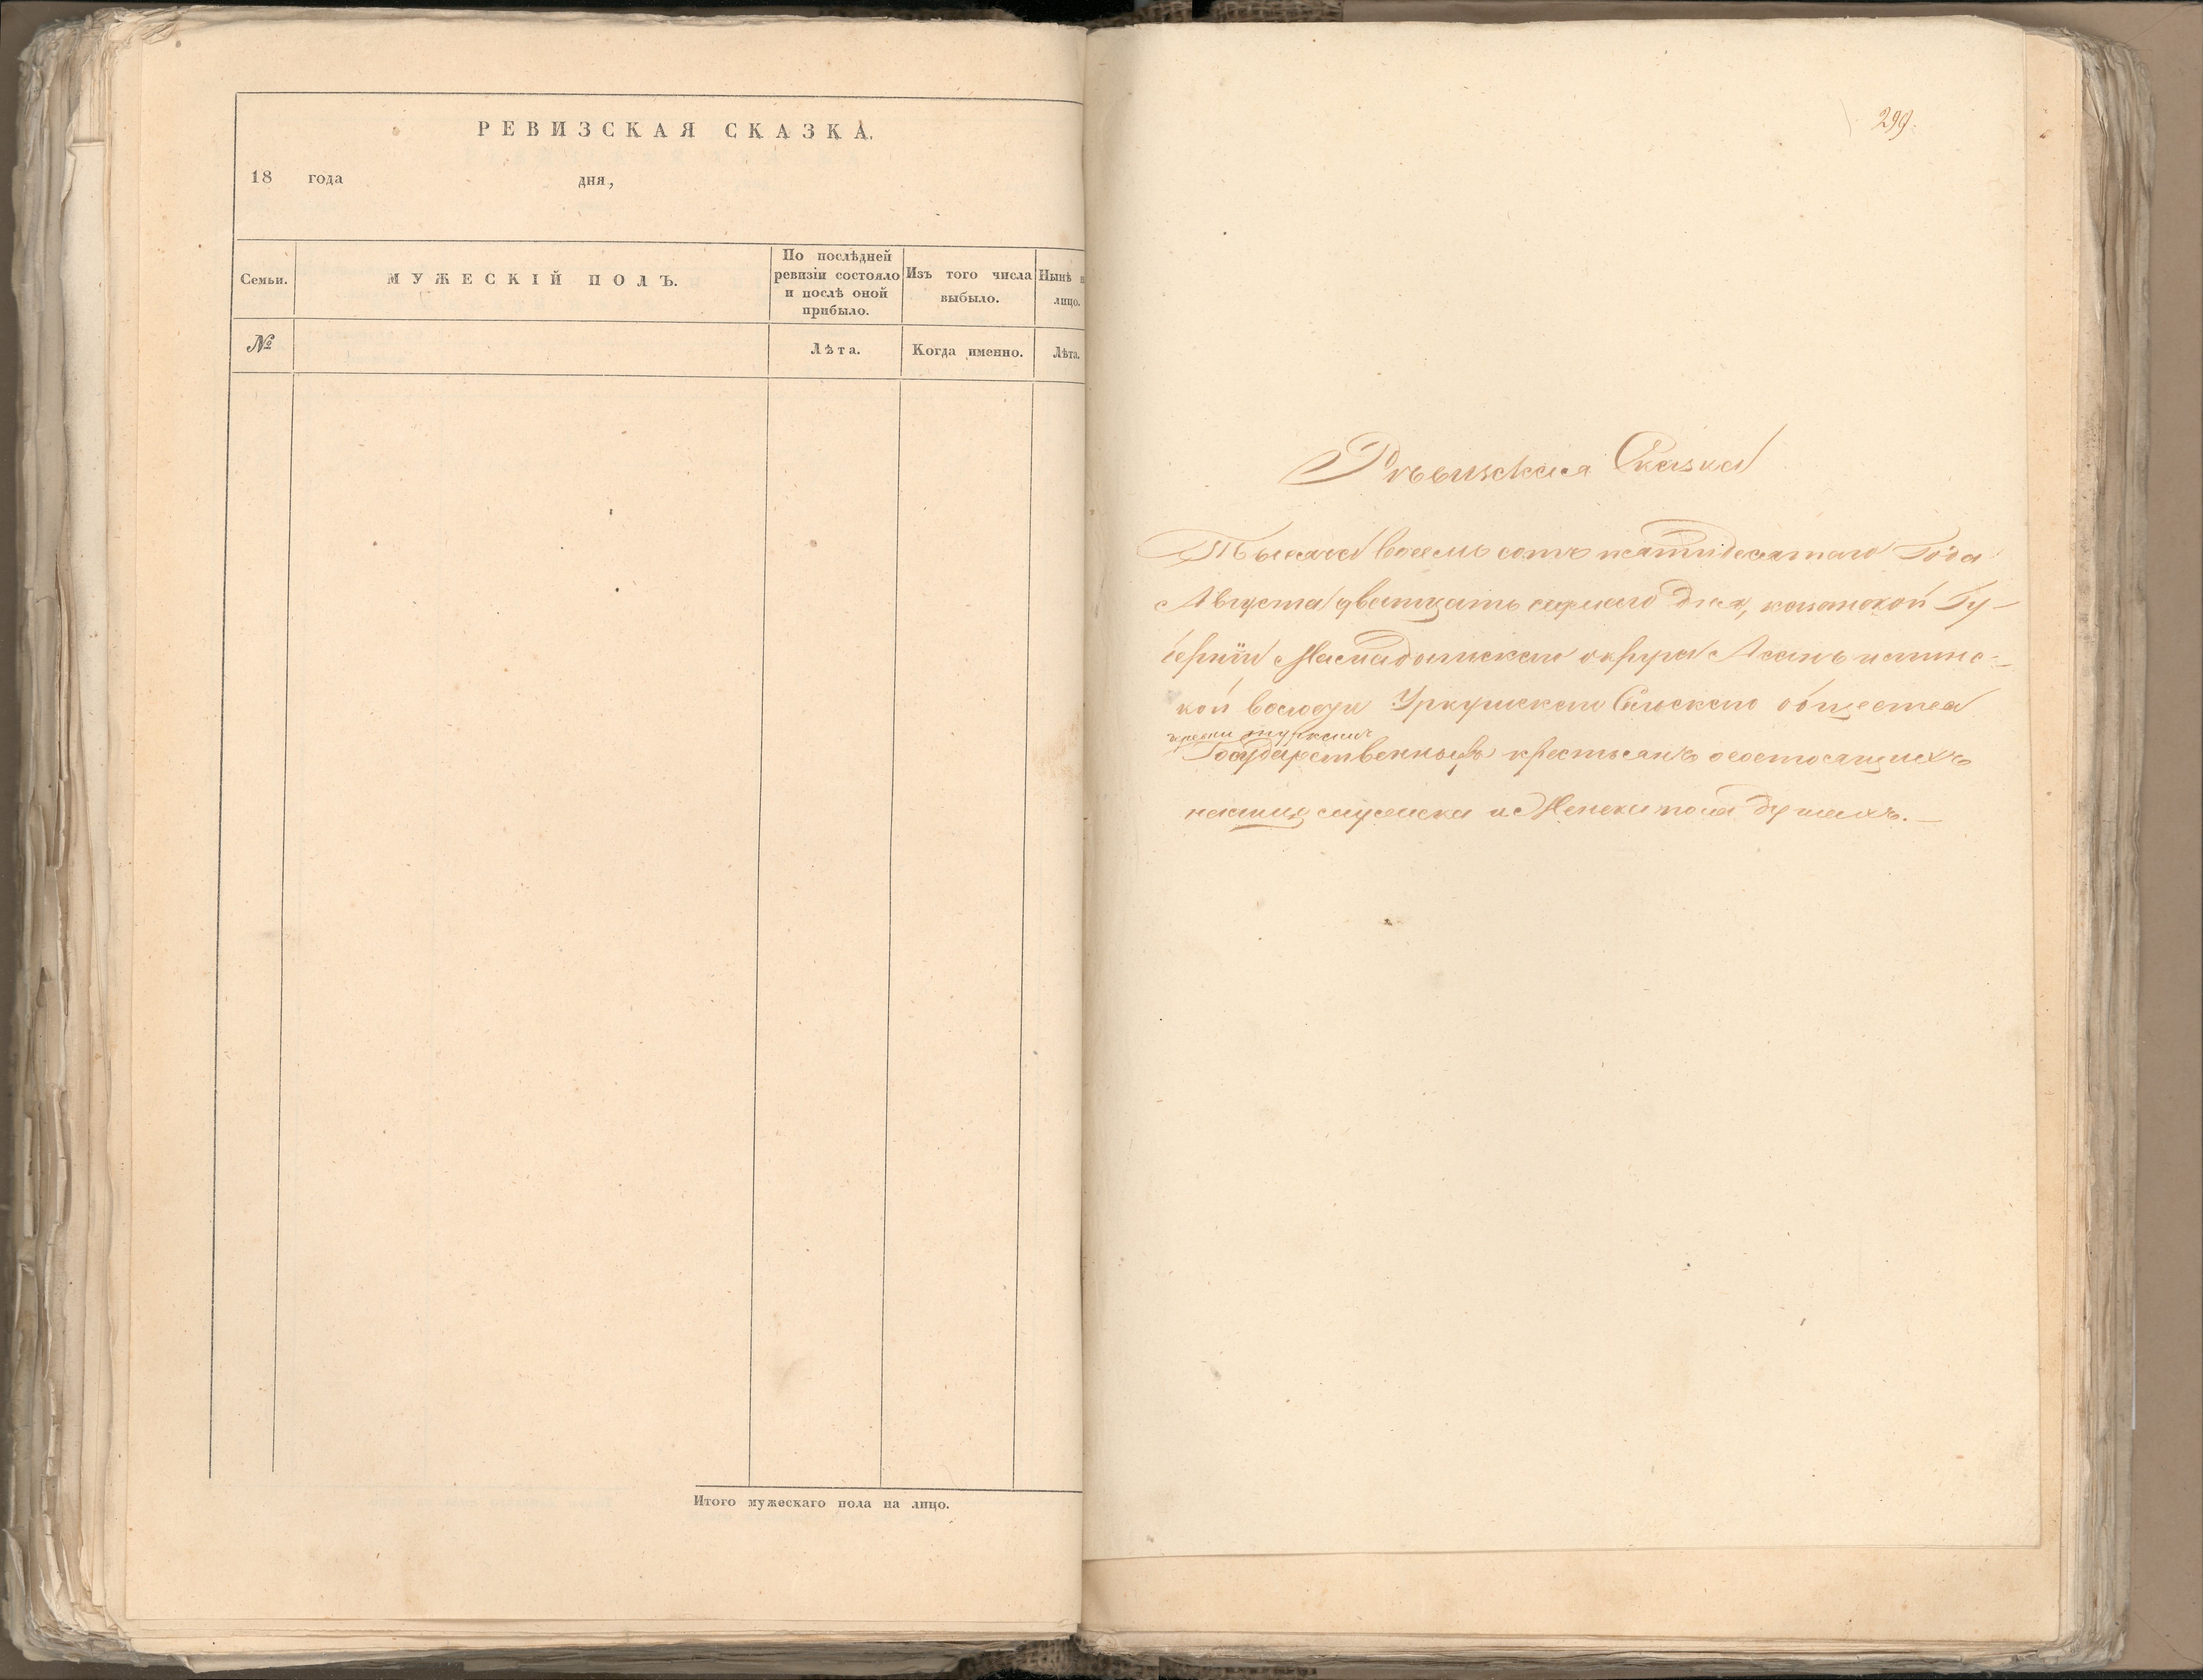 РЕВИЗСКАЯ СКАЗКА.
18 года дня,
Семьи.
МУЖЕСКІЙ ПОЛЪ.
По послѣдней
ревизіи состояло
и послѣ оной
прибыло.
Изъ того числа
выбыло.
Нынѣ н
лицо.
№
Лѣта.
Когда именно.
Лѣта.
Итого мужескаго пола на лицо.
299.
Ревизская Сказка
Тысяча восемь сотъ пятидесятаго Года
Августа дватцать седмаго дня, казанской Гу-
берніи Мамадышскаго округа
кой волости Уркушскаго Сельскаго общества
Государственныхъ крестьянъ о состоящихъ
мужеска и Женска пола душахъ.